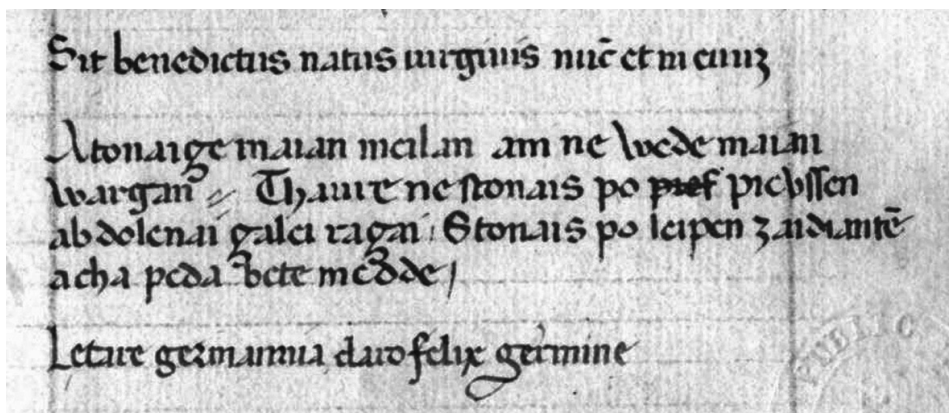 Sit benedictus natus uirginis nuc̄ et in euuʒ
Atonaige maian meilan am ne wede maian
wargan // Thaure ne stonais po pref picussen
abdolenai galei ragai / Stonais po leipen zaidiantē
acha peda bete medde /
Letare germannia claro felix germine
PUBLIC